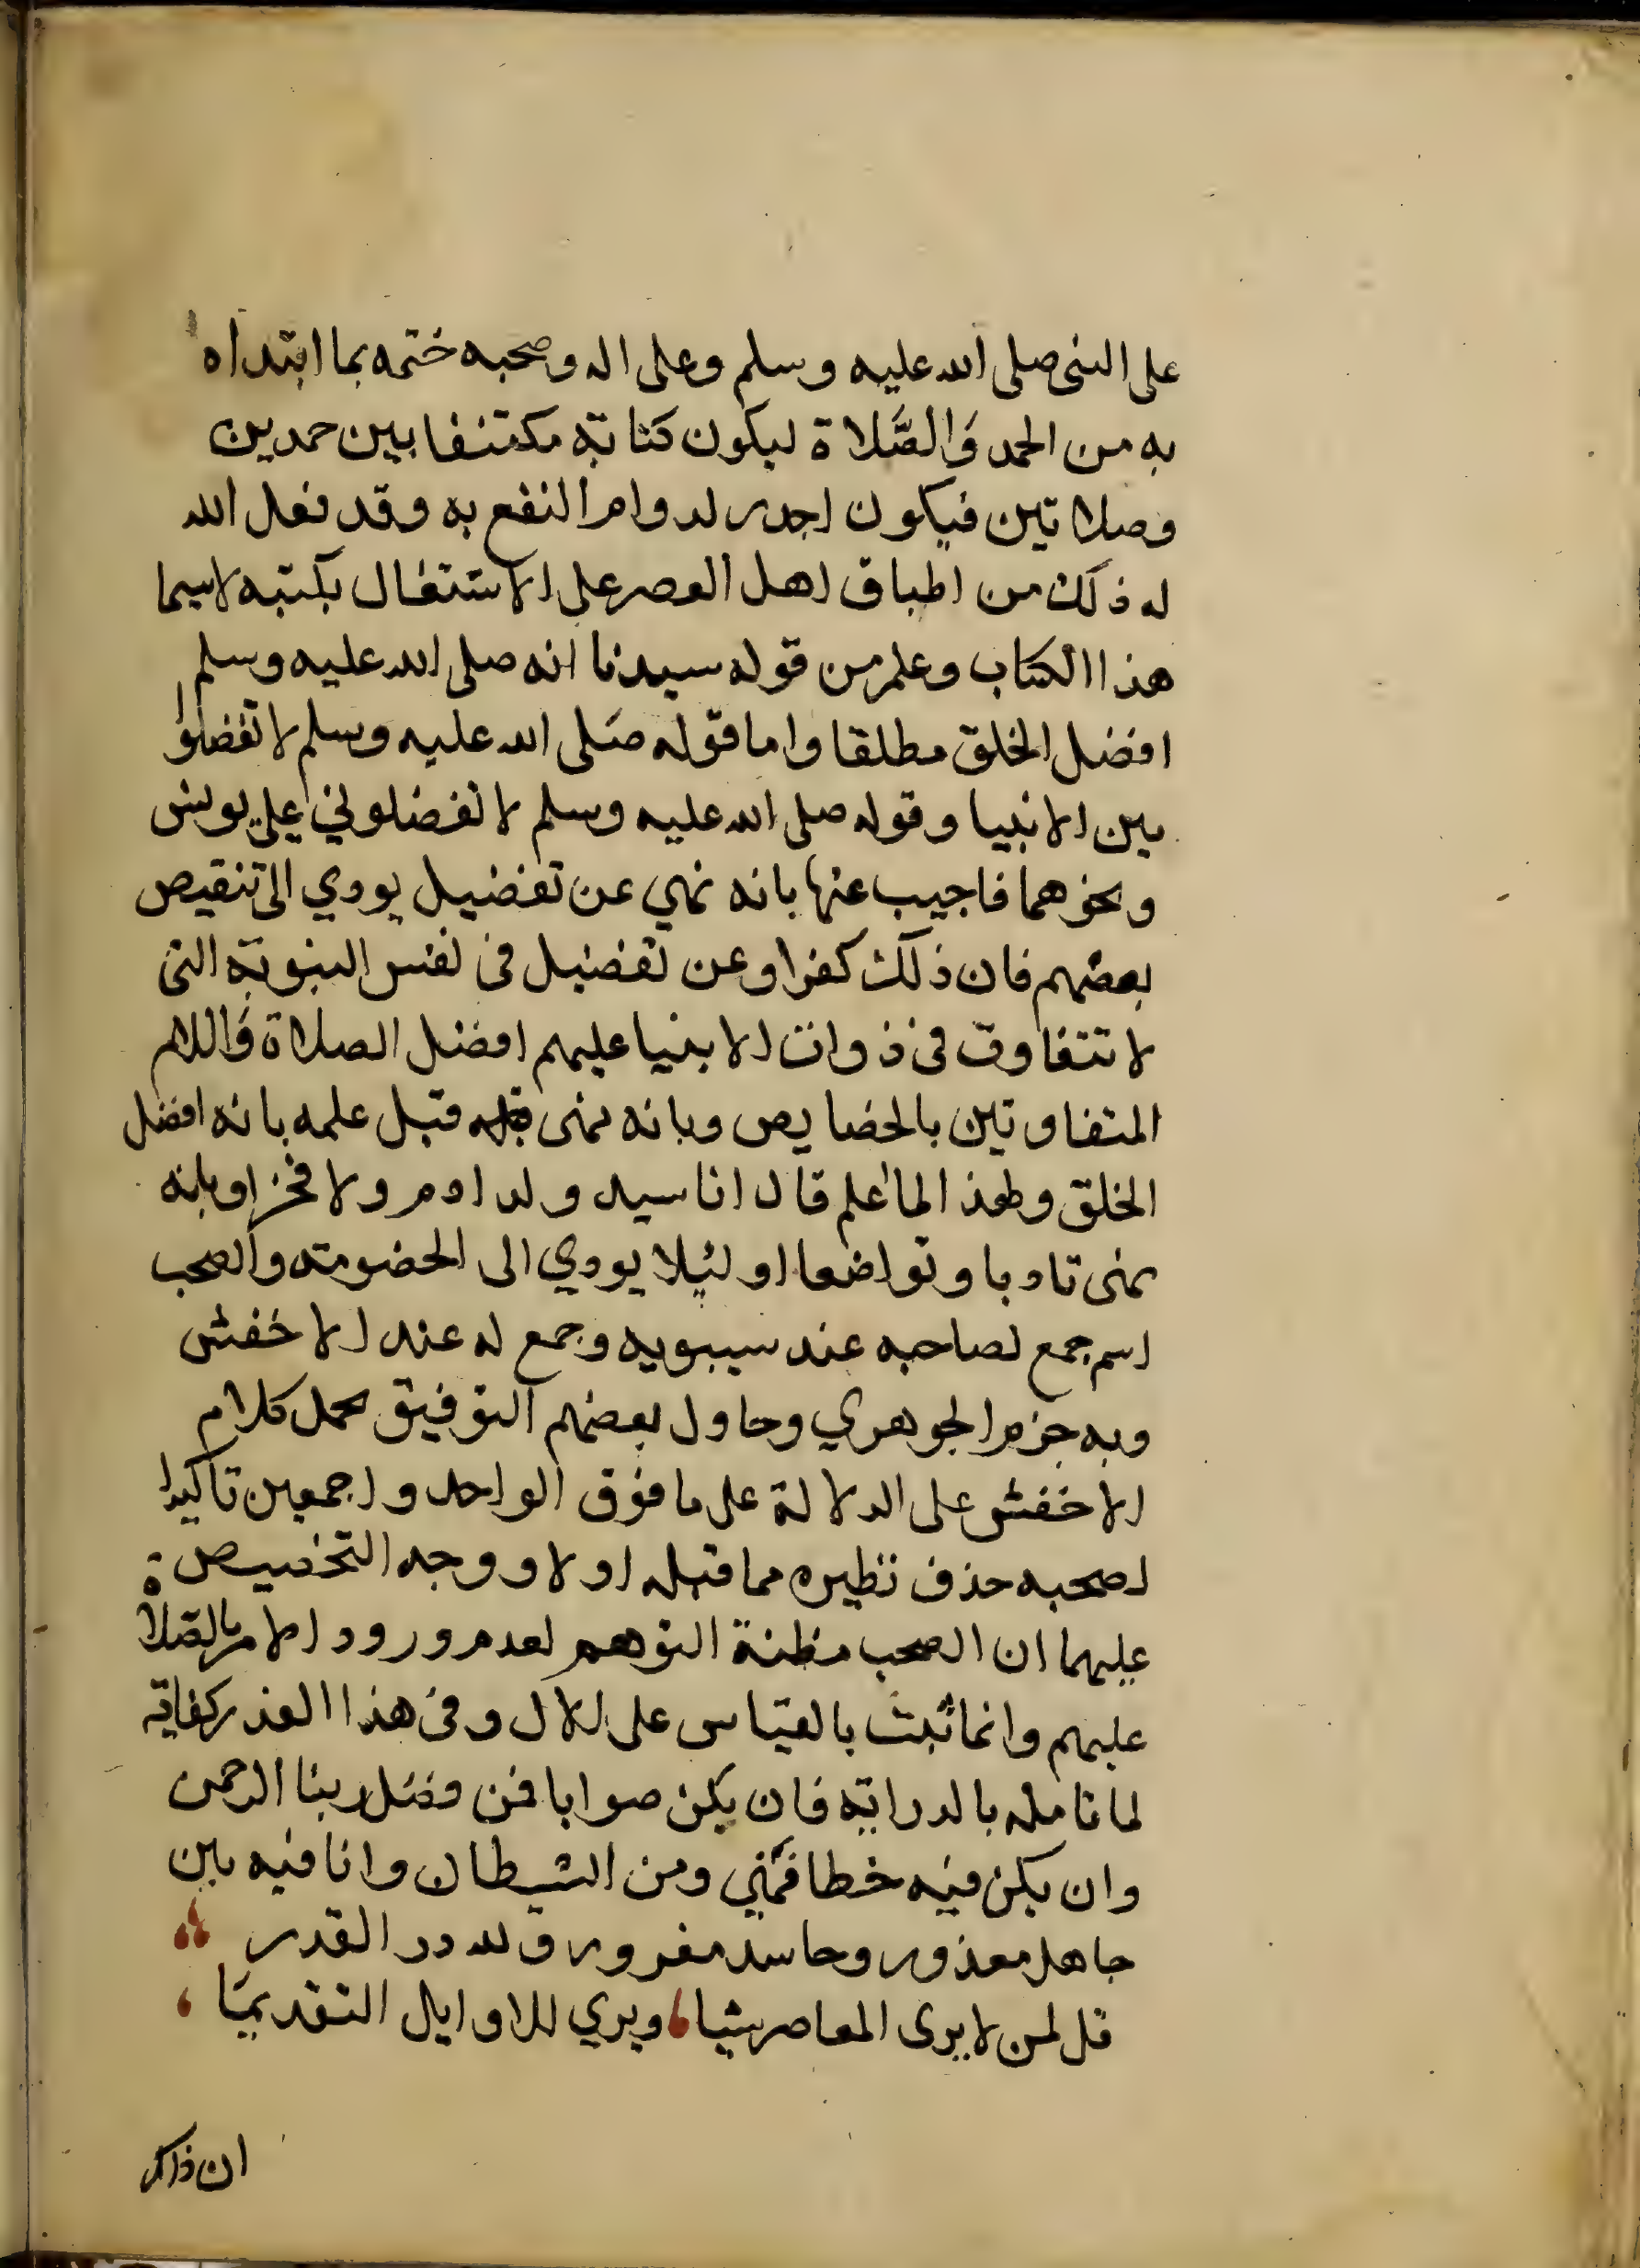 على النبى صلى الله عليه وسلم وعلى اله وصحبه ختمه بما ابتداه
به من الحمد والصَّلاة ليكون كتابه مكتنفا بين حمدين
وصلاتين فيكون اجدر لدوام النفع به وقد فعل الله
له ذلك من اطباق اهل العصر على الاشتغال بكتبه لاسيما
هذا الكتاب وعلم من قوله سيدنا انه صلى الله عليه وسلم
افضل الخلق مطلقا واما قوله صَلى الله عليه وسلم لا تفضلوا
بين الانبيا وقوله صلى الله عليه وسلم لا تفضلوني علي يونس
ونحوهما فاجيب عنها بانه نهي عن تفضيل يودي الى تنقيص
بعضهم فان ذلك كفر او عن تفضيل فى نفس النبوة التى
لا تتفاوت فى ذوات الانبيا عليهم افضل الصلاة والسلام
المتفاوتين بالخصايص وبانه نهى قبل علمه بانه افضل
الخلق ولهذا لما علم قال انا سيد ولد ادم ولا فخر او بانه
نهى تادبا وتواضعا او ليلا يودي الى الخصومة والصحب
اسم جمع لصاحبه عند سيبويه وجمع له عند الاخفش
وبه جزم الجوهري وحاول بعضهم التوفيق بحمل كلام
الاخفش على الدلالة على ما فوق الواحد واجمعين تاكيدا
لصحبه حذف نظيره مما قبله اولا ووجه التخصيص
عليهما ان الصحب مظنة التوهم لعدم ورود الامر بالصَلاة
عليهم وانما ثبت بالقياس على الال وفى هذا القدر كفاية
لما تامله بالدراية فان يكن صوابا فمن فضل ربنا الرحمن
وان يكن فيه خطا فمني ومن الشيطان وانا فيه بين
جاهل معذور وحاسد مغرور ولله در القدر
قل لمن لا يرى المعاصر شيا ويري للاوايل التقديمَا
ان ذاك